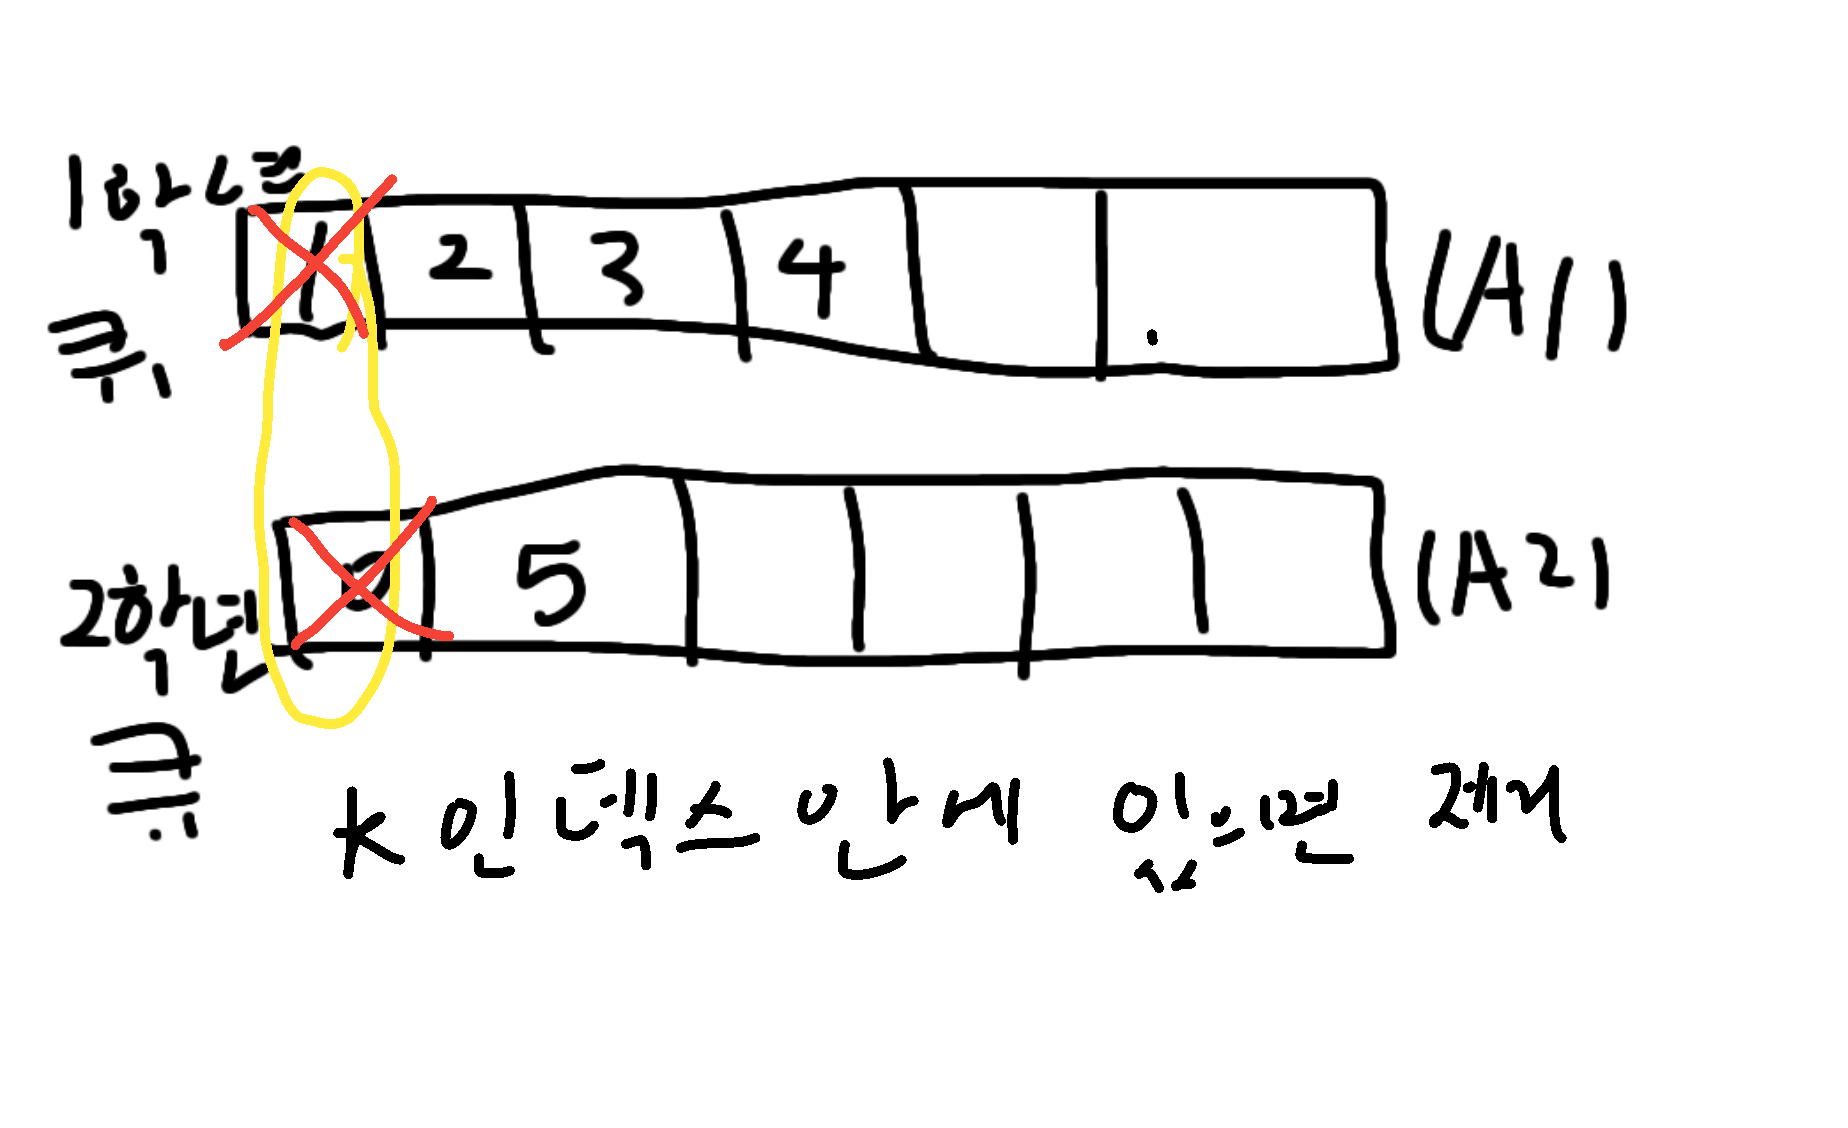 1학년
큐
1 2 3 4 (A1)
2학년
큐
0 5 (A2)
K 인덱스 안에 있으면 제거